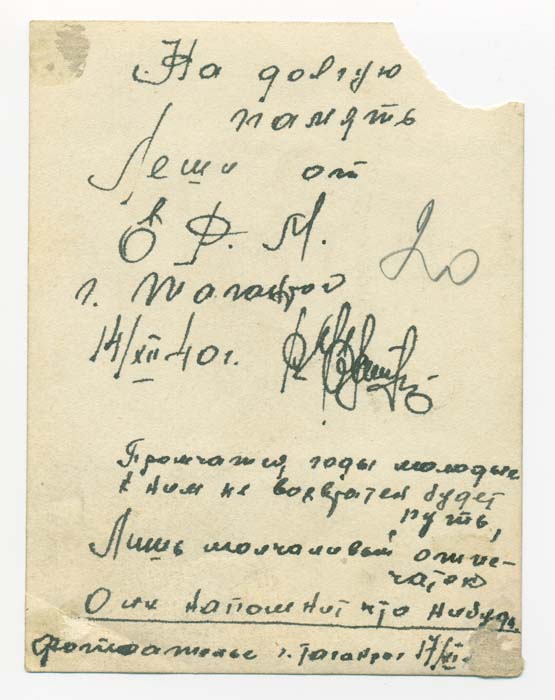 На долгую
память
Леши от
В Ф. М.
20
г. Таганрог
14/XII 40 г.
Промчатся годы молодые
к ним не возвратен будет
путь,
Лишь молчаливый отпе-
чаток
О них напомнит что нибудь.
Фотоателье г. Таганрог 17/XI